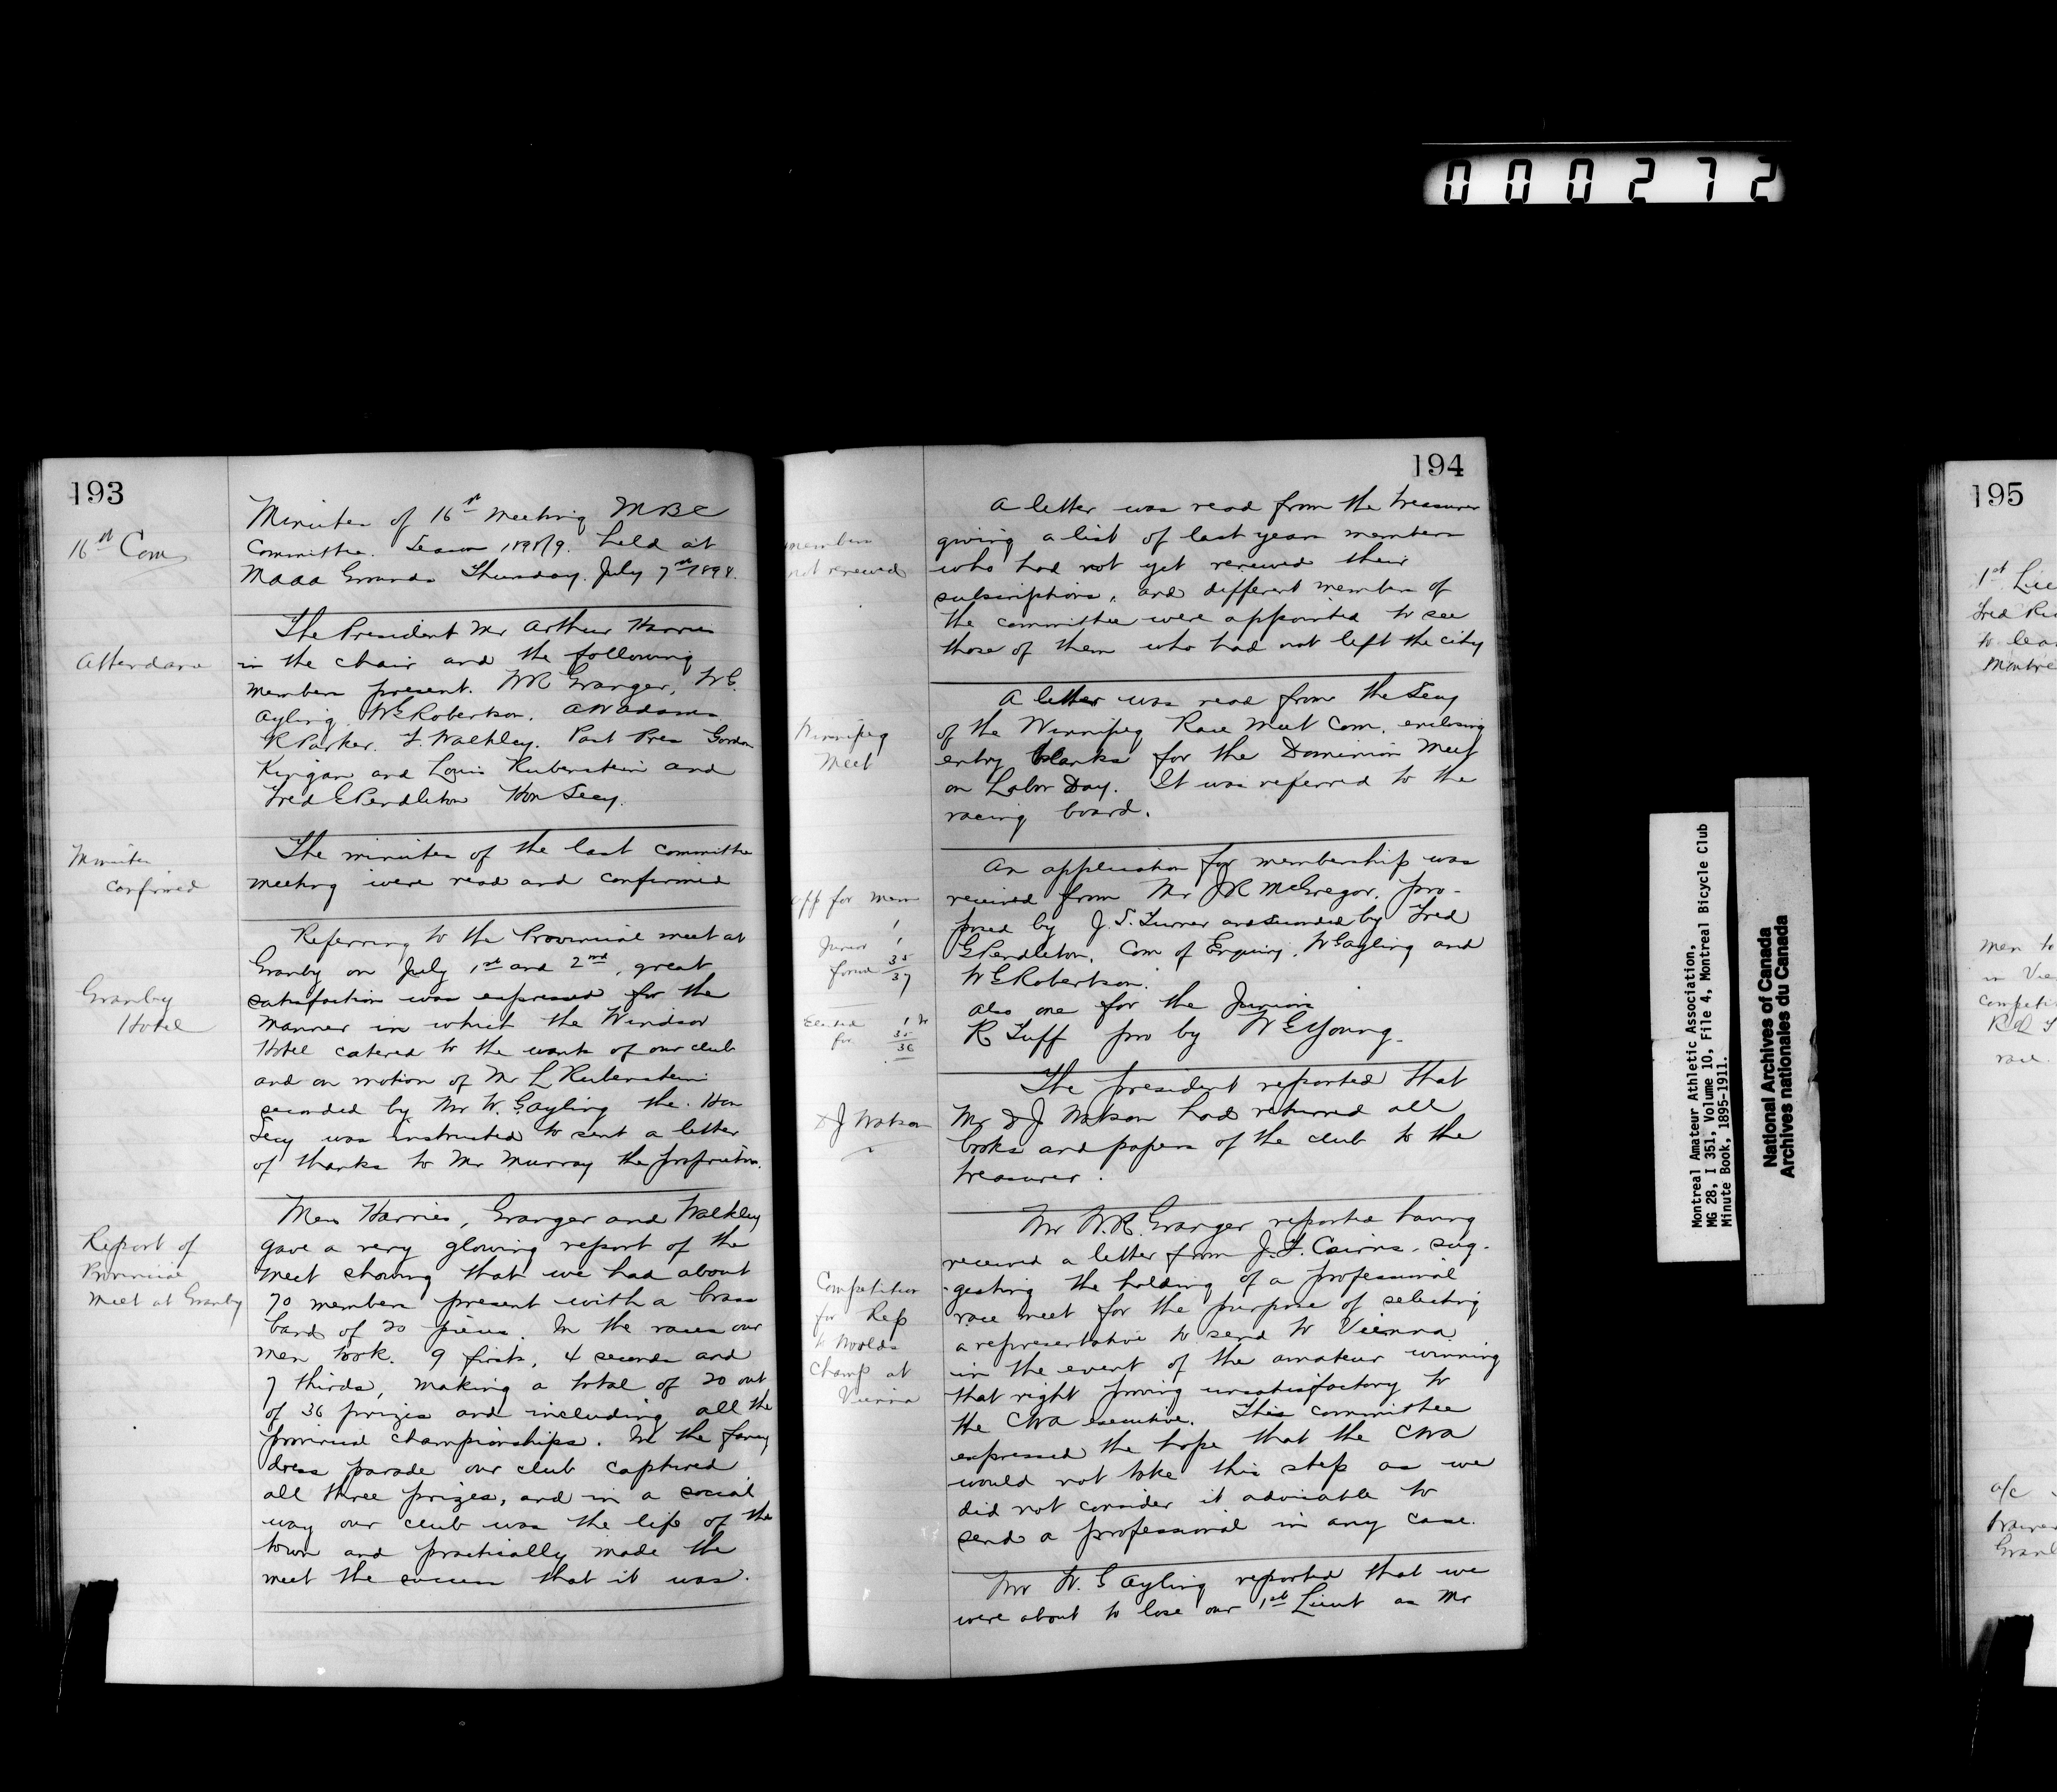 000272
193
16th Com
Minutes of 16th Meeting MBC
Committee. Season 1898/9. held at
MAAA Grounds Thursday. July 7th 1898.
Attendance
The President Mr Arthur Harries
in the chair and the following
members present. WR Granger, W G.
Ayling. W G Robertson. A W Adams
R Parker. F. Walkley. Past Pres Gordon
Kingan and Louis Rubenstein and
Fred G Pendleton Hon Secy.
Minutes
confirmed
The minutes of the last committee
meeting were read and confirmed
Granby
Hotel
Referring to the Provincial meet at
Granby on July 1st and 2nd, great
satisfaction was expressed for the
manner in which the Windsor
Hotel catered to the wants of our club
and on motion of Mr L Rubenstein
seconded by Mr W. G. Ayling the Hon
Secy was instructed to sent a letter
of thanks to Mr Murray the proprietor.
Report of
Provincial
Meet at Granby
Mess Harries, Granger and Walkley
gave a very glowing report of the
meet showing that we had about
70 members present with a brass
band of 20 pieces. In the races our
men took. 9 firsts, 4 seconds and
7 thirds, making a total of 20 out
of 36 prizes and including all the
provincial championships. In the fancy
dress parade our club captured
all three prizes, and in a social
way our club was the life of the
town and practically made the
meet the success that it was.
194
members
not renewed
A letter was read from the treasurer
giving a list of last years members
who had not yet renewed their
subscriptions, and different members of
the committee were appointed to see
those of them who had not left the city
Winnipeg
Meet
A letter was read from the Secy
of the Winnipeg Race Meet Com. enclosing
entry blanks for the Dominion Meet
on Labor Day. It was referred to the
racing board.
app for mem
1
Junior 1
forward 35
37
Elected 1
for 35
36
An application for membership was
received from Mr JR McGregor. pro-
posed by J. S. Turner and seconded by Fred
G Pendleton. Com of Enquiry. W G Ayling and
W G Robertson.
also one for the Juniors
R Tuff pro by W G Young.
D J Watson
The president reported that
Mr D J Watson had returned all
books and papers of the club to the
treasurer.
Competition
for Rep
to Worlds
Champ at
Vienna
Mr W. R. Granger reported having
received a letter from J. F. Cairns. sug-
-gesting the holding of a professional
race meet for the purpose of selecting
a representative to send to Vienna
in the event of the amateur winning
that right proving unsatisfactory to
the CWA executive. This committee
expressed the hope that the CWA
would not take this step as we
did not consider it advisable to
send a professional in any case.
Mr W. G Ayling reported that we
were about to lose our 1st Lieut as Mr
Montreal Amateur Athletic Association,
MG 28, I 351, Volume 10, File 4, Montreal Bicycle Club
Minute Book, 1895-1911.
National Archives of Canada
Archives nationales du Canada
195
1st Lieu
Fred
to lea
Montre
Men to
in Vie
Competi
race.
a/c
Granb